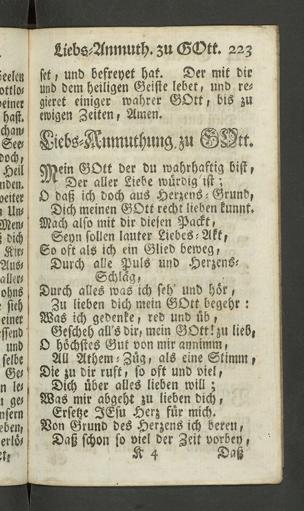 Liebs-Anmuth. zu GOtt. 223
set, und befreyet hat. Der mit dir
und dem heiligen Geiste lebet, und re-
gieret einiger wahrer GOtt, bis zu
ewigen Zeiten, Amen.
Liebs-Anmuthung zu GOtt.
Mein GOtt der du wahrhaftig bist,
Der aller Liebe würdig ist;
O daß ich doch aus Herzens-Grund,
Dich meinen GOtt recht lieben kunnt.
Mach also mit dir diesen Packt,
Seyn sollen lauter Liebes-Akt,
So oft als ich ein Glied beweg,
Durch alle Puls und Herzens-
Schläg,
Durch alles was ich seh' und hör,
Zu lieben dich mein GOtt begehr:
Was ich gedenke, red und üb,
Gescheh all's dir, mein GOtt! zu lieb,
O höchstes Gut von mir annimm,
All Athem-Züg, als eine Stimm,
Die zu dir ruft, so oft und viel,
Dich über alles lieben will;
Was mir abgeht zu lieben dich,
Ersetze JEsu Herz für mich.
Von Grund des Herzens ich bereu,
Daß schon so viel der Zeit vorbey,
K 4 Daß